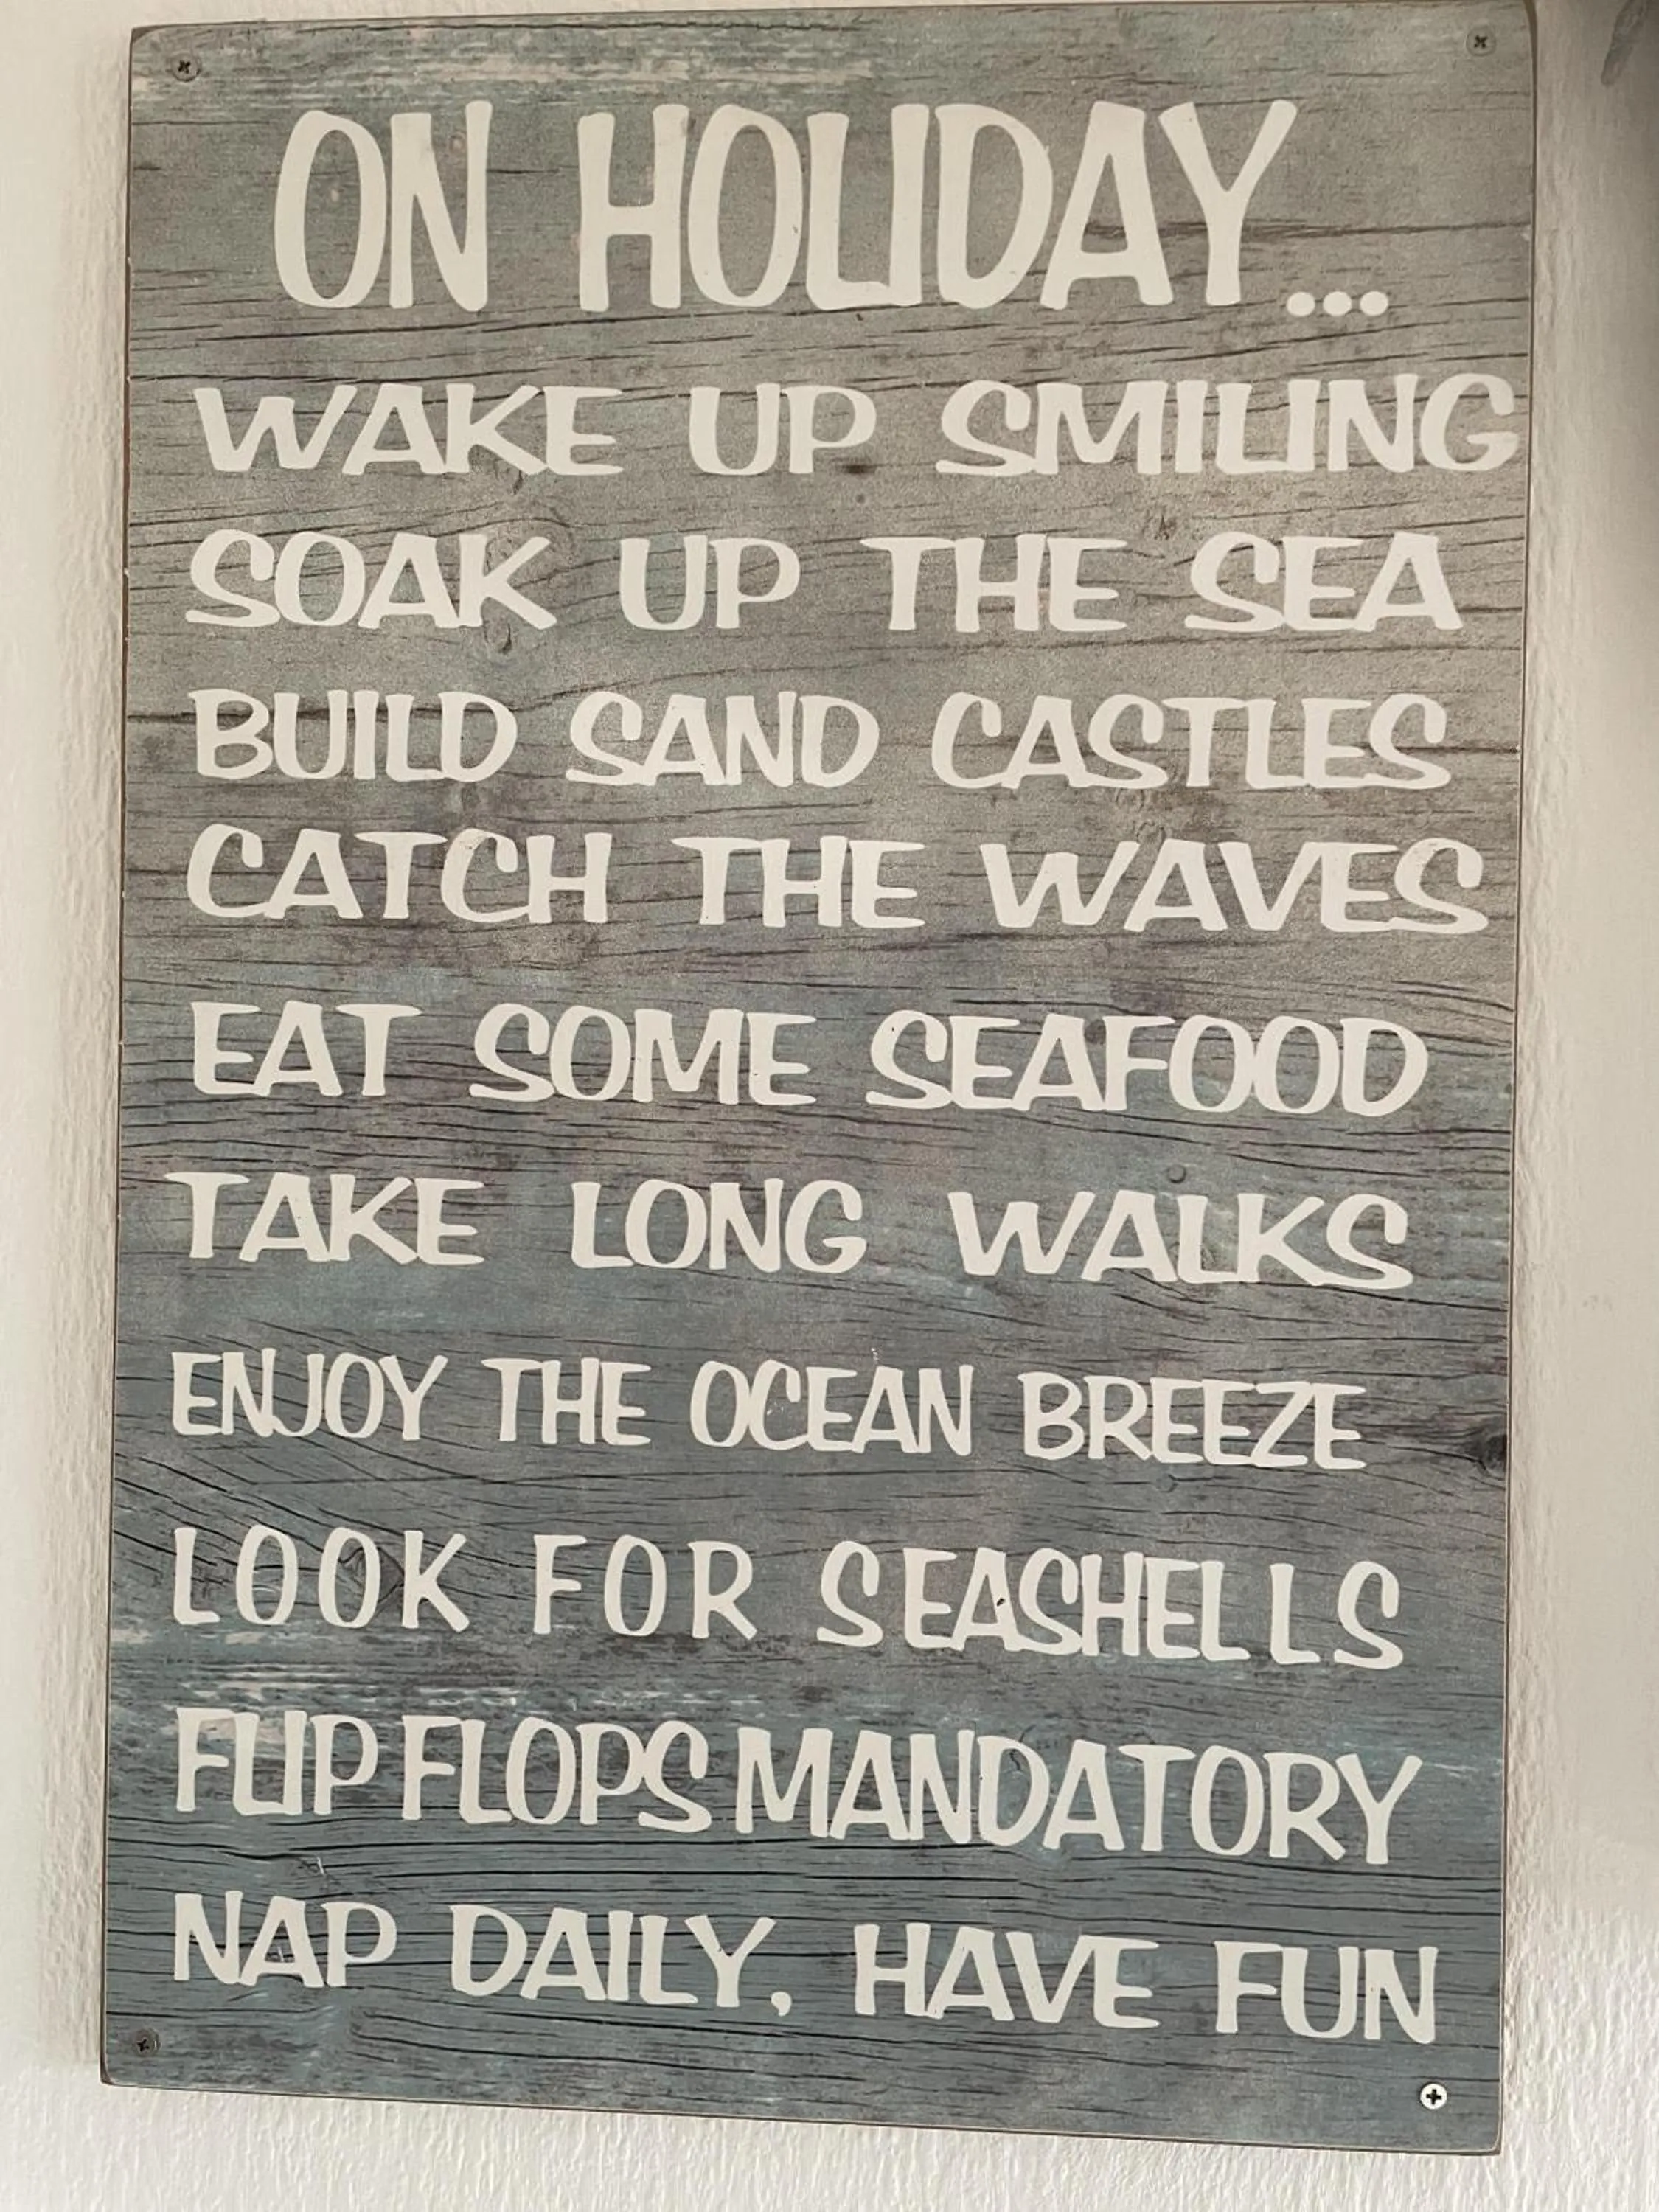 ON HOLIDAY...
WAKE UP SMILING
SOAK UP THE SEA
BUILD SAND CASTLES
CATCH THE WAVES
EAT SOME SEAFOOD
TAKE LONG WALKS
ENJOY THE OCEAN BREEZE
LOOK FOR SEASHELLS
FLIP FLOPS MANDATORY
NAP DAILY, HAVE FUN